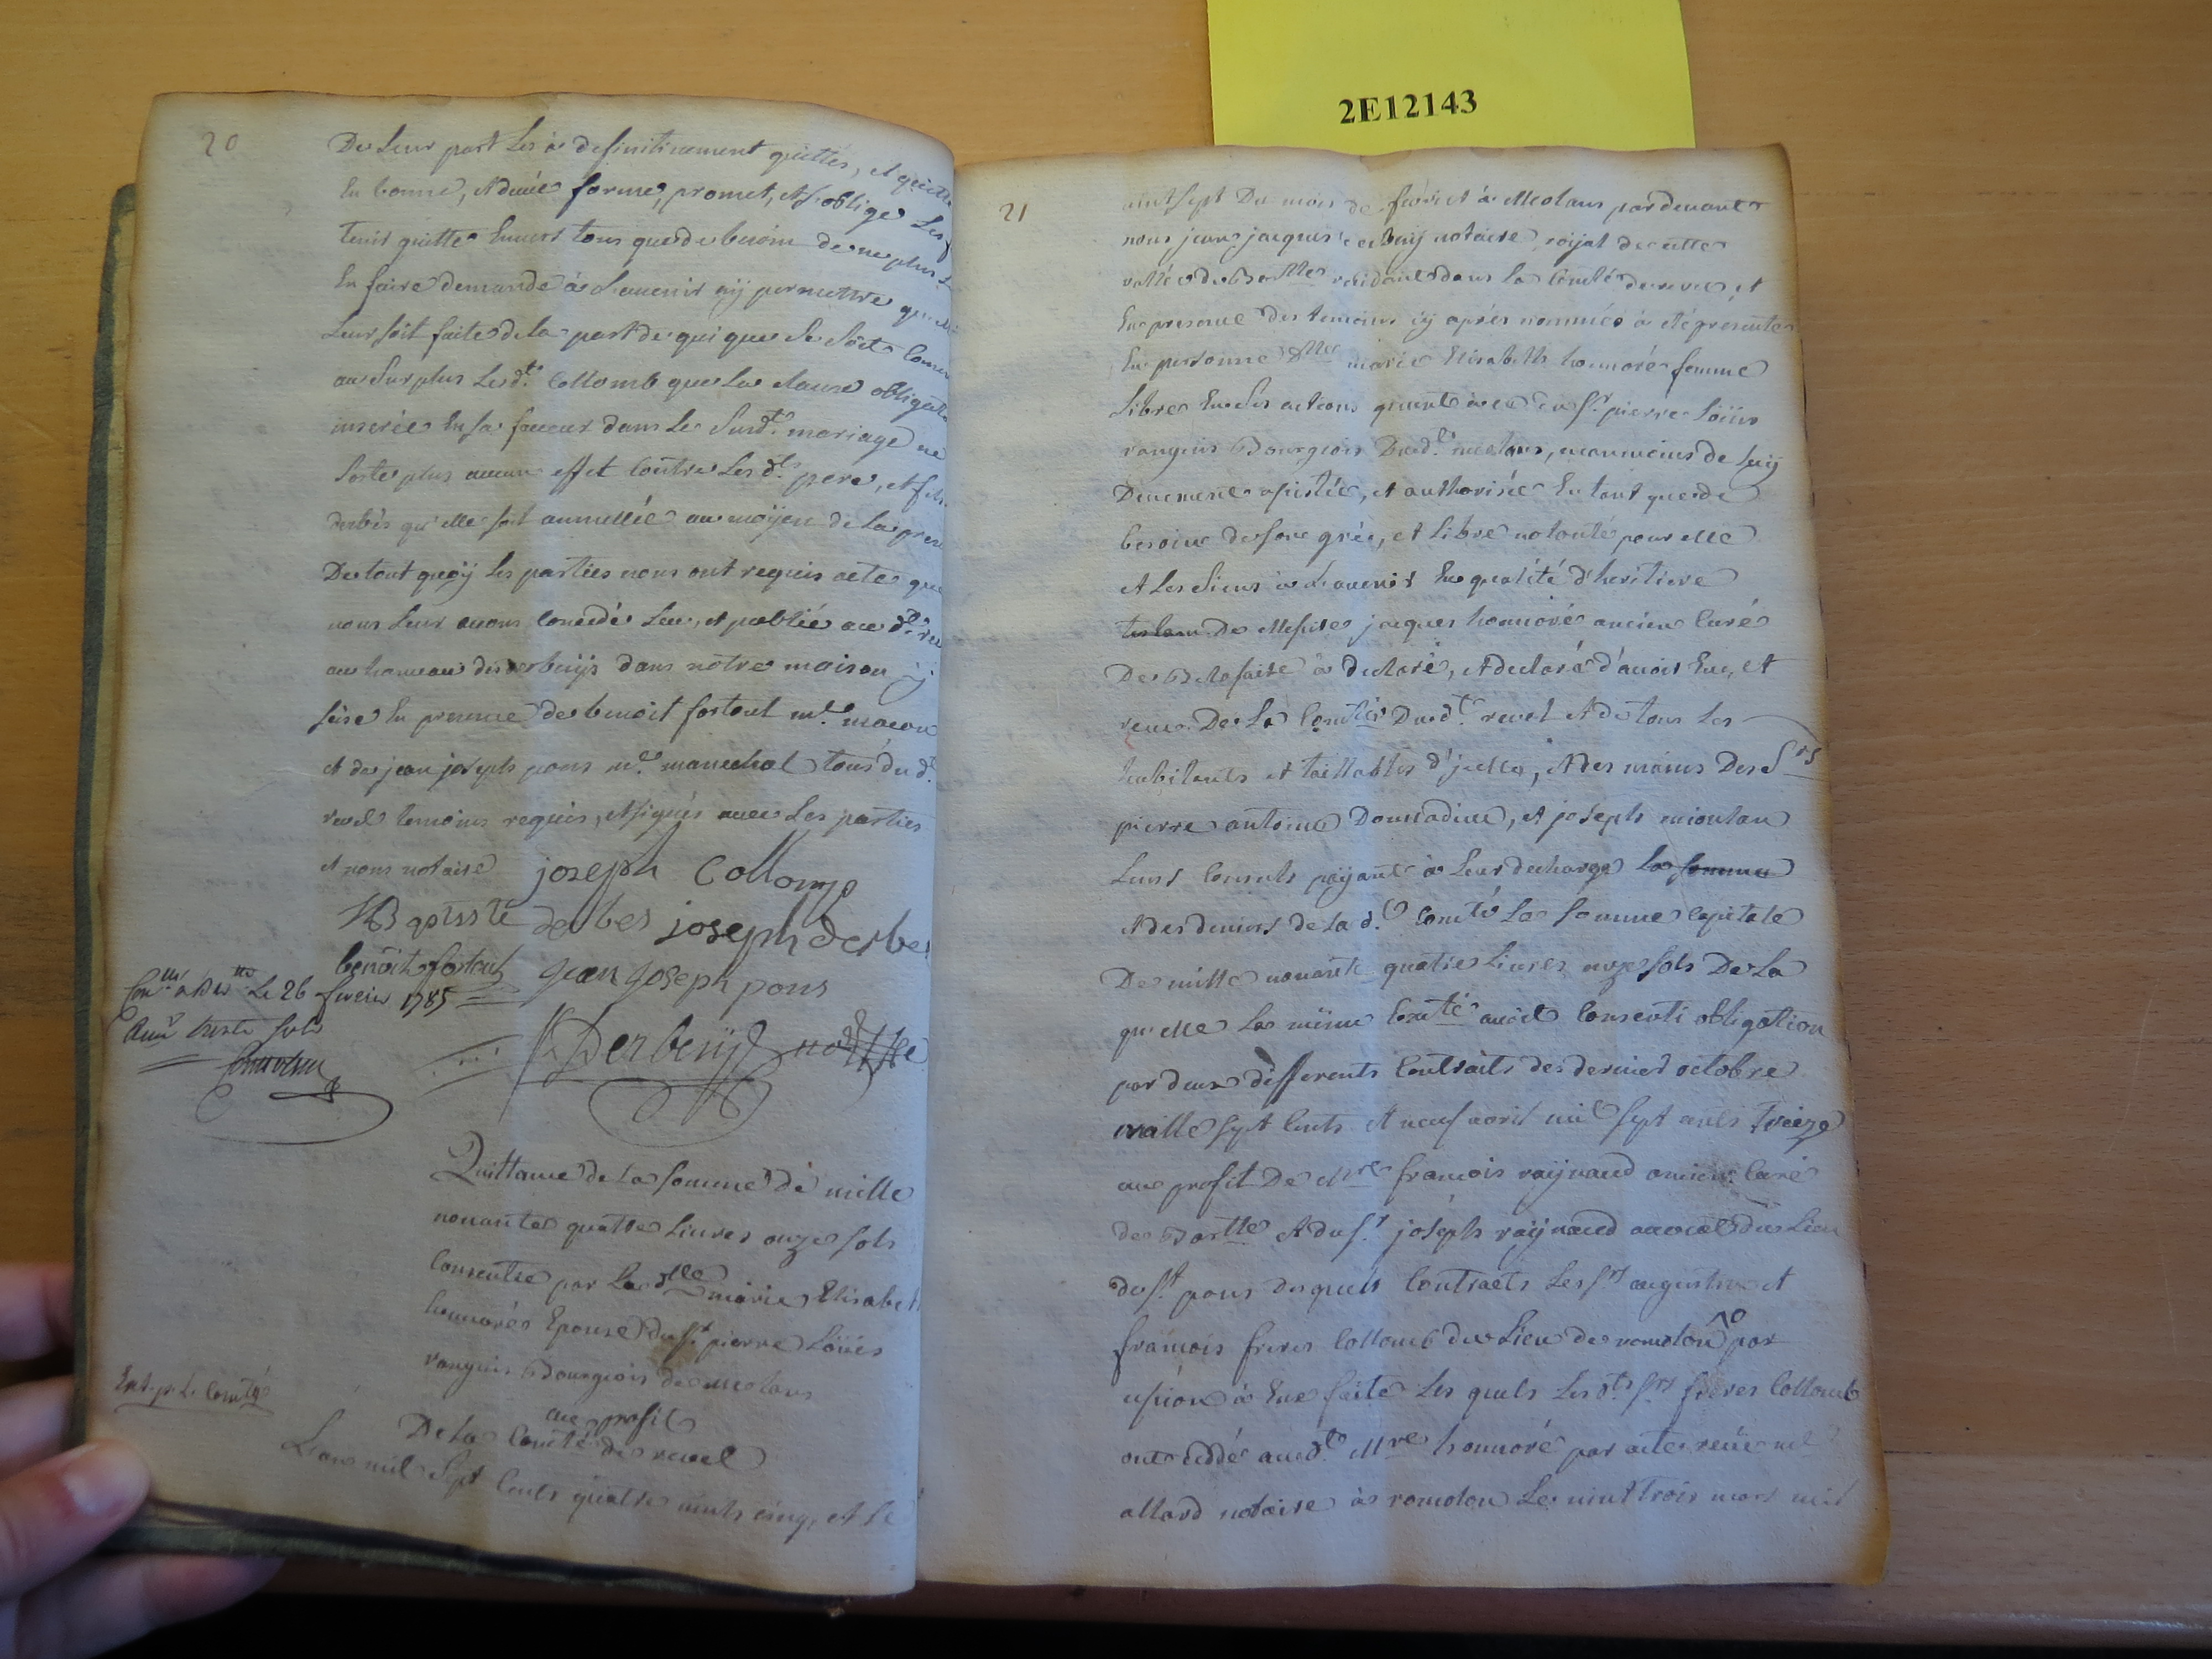 2E12143
20
De Leur part Les a definitivement quittés, et quitte
En bonne, et deüe forme, promet, et s'oblige Les
tenir quitte Envers tous que de besoin de ne plus
En faire demande à L'avenir ny permettre que
Leur soit faite de la part de qui que Se Soit Consent
au Surplus Led.t Collomb que La clause obligat
inserée En sa faveur dans Le Susd.t mariage ne
sorte plus aucun effet Contre Lesd.ts pere, et fils
derbés qu'elle soit annullée au moÿen de La pres
De tout quoÿ Les parties nous ont requis acte que
nous Leur avons Concédé Leu, et publié aud.t re
au hameau des derbeÿs dans nôtre maison
size En presence de benoit fortoul m.e macon
et de jean joseph pons m.e marechal tous dud.t
revel temoins requis, et signés avec Les parties
et nous notaire joseph Collomp
JB aptiste derbes joseph derbes
benoit fortoul jean joseph pons
Con.lé à Bar.te Le 26 fevrier 1785
Reçu trente sols
Derbeÿ no.re
Quittance de La somme de mille
nonante quatre Livres onze sols
Consentie par La d.lle marie Elisabeth
honnorée Epouse du s.r pierre Löüis
ranguis Bourgeois de meolans
au profit
De La Com.té de revel
Ext. p.r La Com.té
L'an mil Sept Cents quatre vints cinq, et Le
21
vint sept Du mois de fevrier à Meolans pardevant
nous jean jacques derbeÿ notaire roÿal de cette
vallée de Bar.tte residant dans La Com.té de revel, et
En presence des temoins cÿ après nommés à eté presente
En personne d.lle marie Elisabeth honnoré femme
Libre En Ses actions quant à ce du S.r pierre Löüis
ranguis Bourgeois Dud.t meolans, neanmoins de Luÿ
Deuement assistée, et authorisée En tant que de
besoin de son grée, et Libre volonté pour elle
et Les Siens à L'avenir En qualité d'heritiere
De Messire jacques honnoré ancien Curé
De à declaré, et declare d'avoir Eu, et
receu De La Com.té Dud.t revel et de tous Les
habitants et taillables d'jcelle, et des mains Des S.rs
pierre antoine Donnadieu, et joseph mioulan
Leurs Consuls payant à Leur decharge La somme
et des deniers de La d.e Com.té La Somme Capitale
De mille nonante quatre Livres onze sols De La
qu'elle La même Com.té avoit Consenti obligation
par deux differents Contraits des dernier octobre
mille sept Cents et neuf avril mil sept cents treize
au profit De M.re francois raÿnaud ancien Curé
de Bar.tte et du s.r joseph raÿnaud avocat du Lieu
de s.t pons desquels Contraits Les s.rs augustin et
francois freres Collomb du Lieu de romolon par
cession à Eux faite Les quels Lesd.ts s.rs freres Collomb
ont cédé aud.t M.re honnoré par acte receu m.e
allard notaire à romolon Le vint trois mars mil